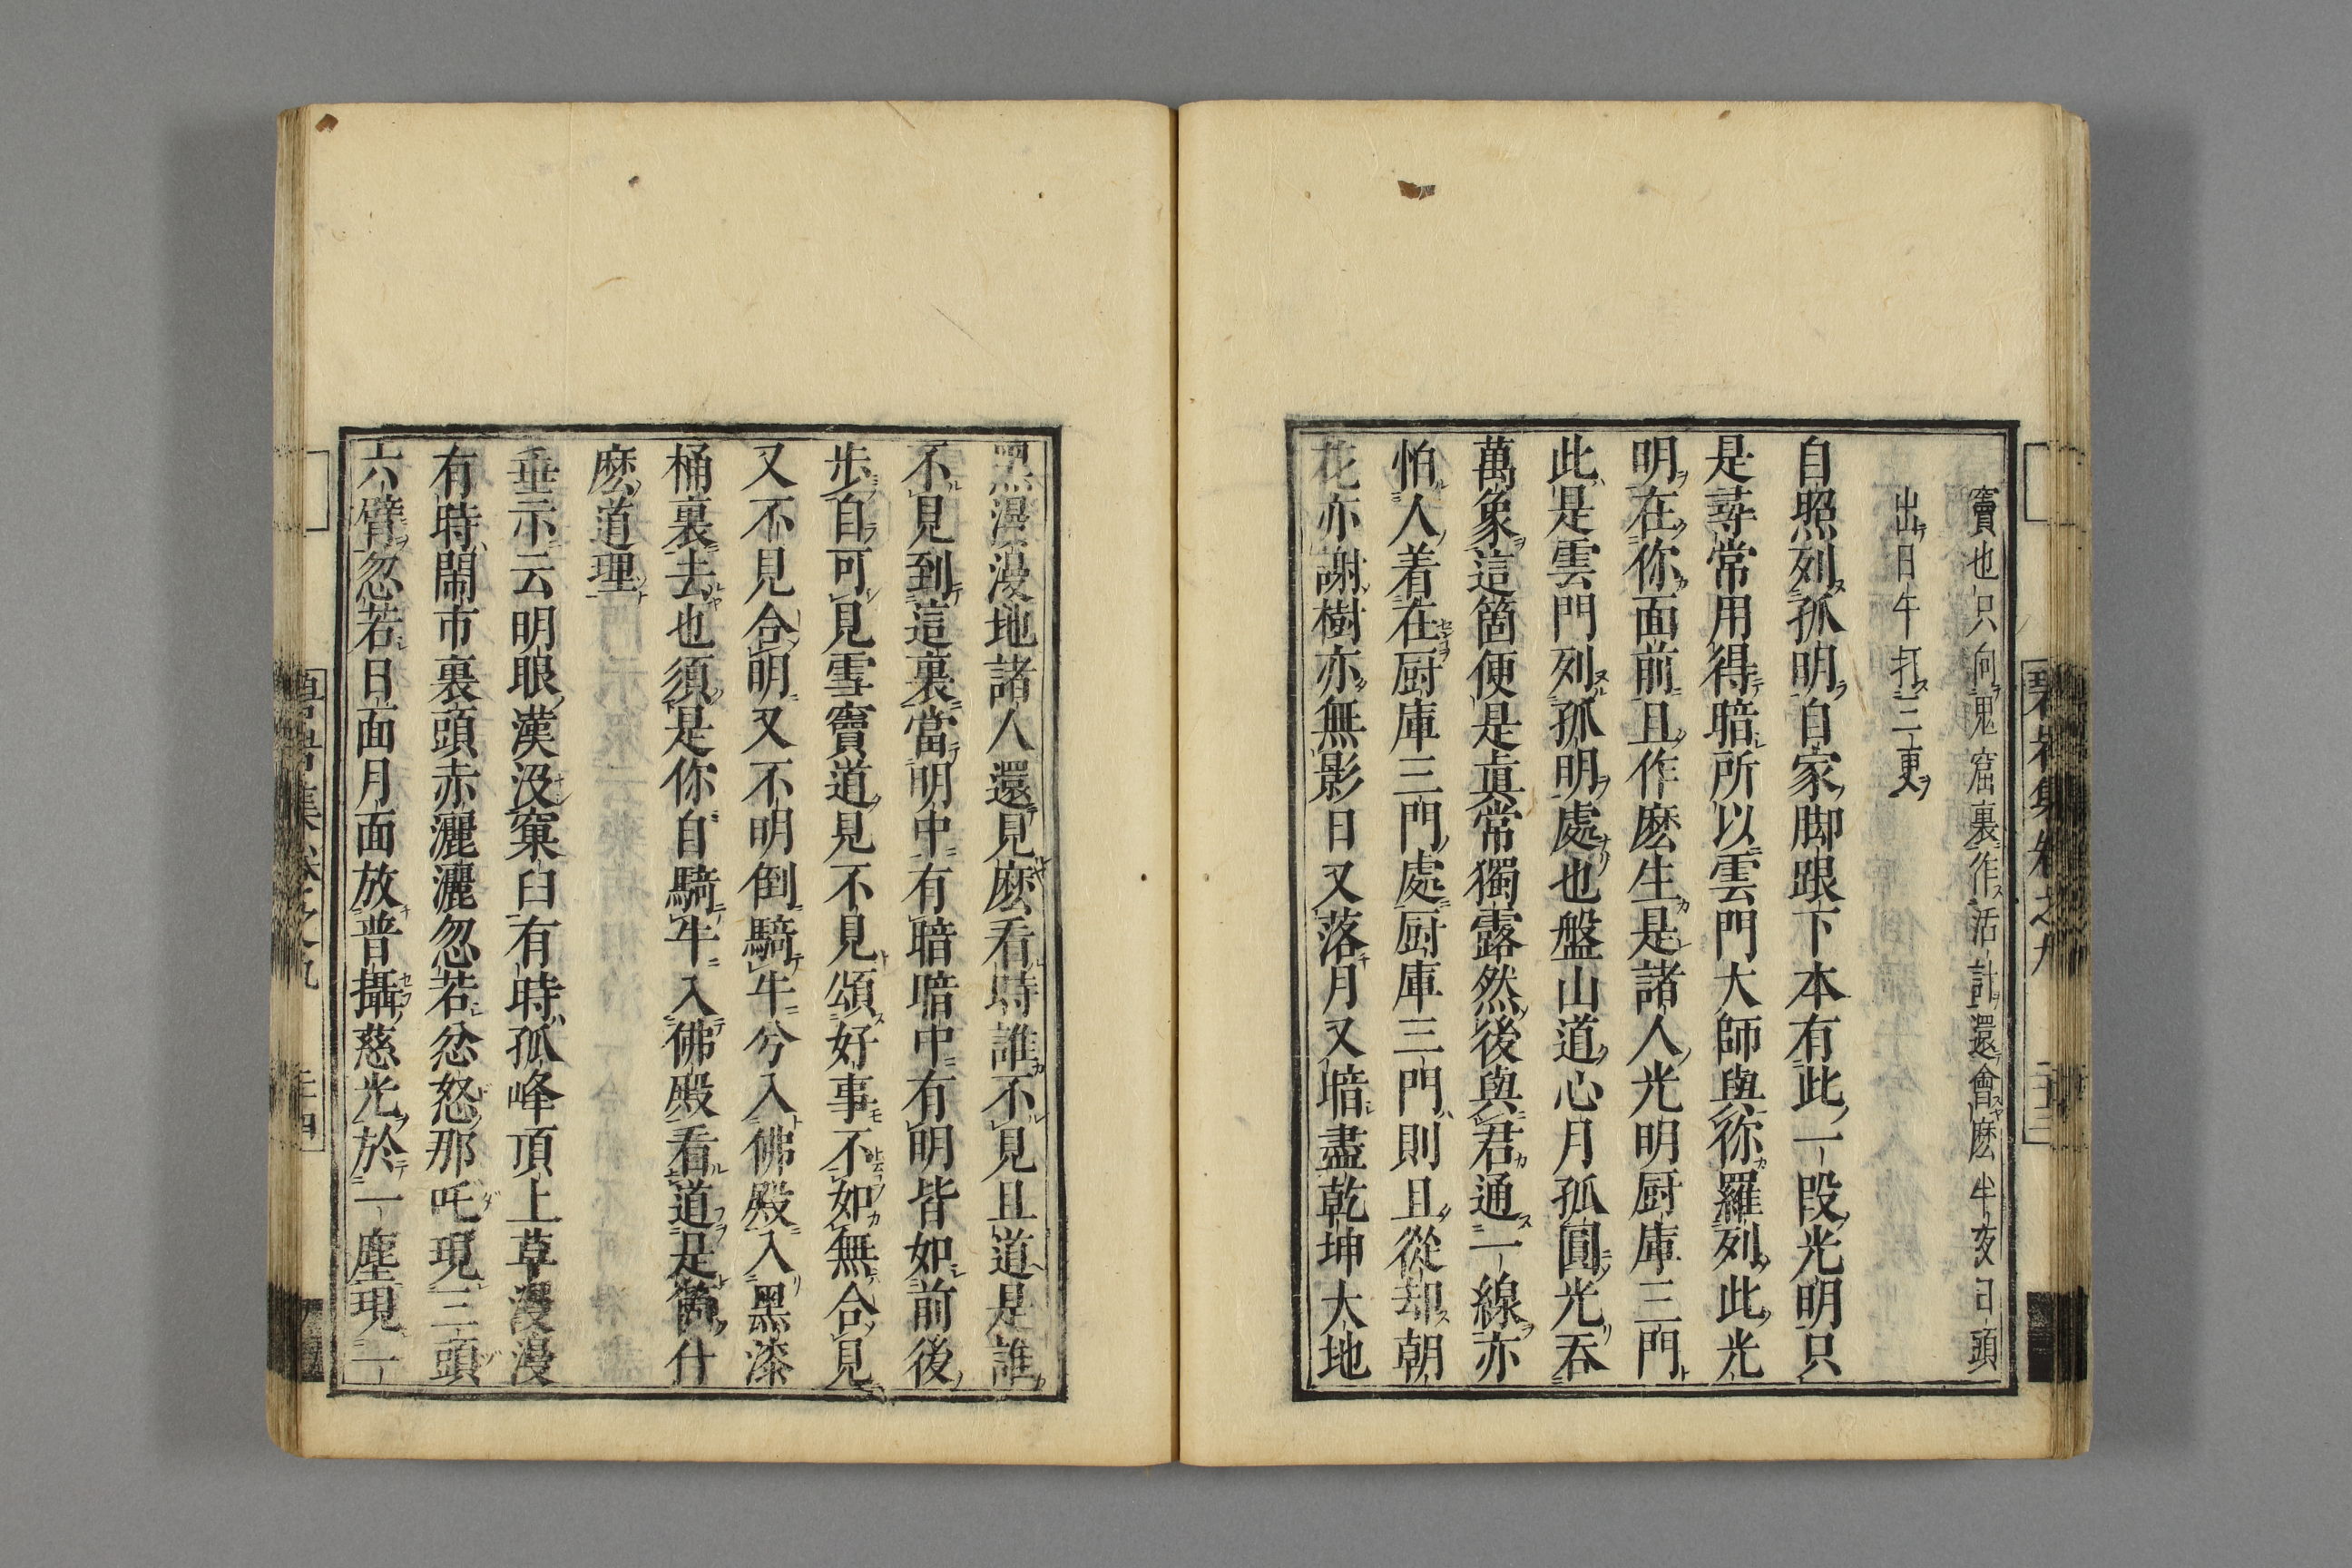 碧岩集卷之九
二十三
竇也只向鬼窟裏作活計還會麽半夜日頭
出日午打三更
自照列孤明自家脚跟下本有此一段光明只
是尋常用得暗所以雲門大師與你羅列此光
明在你面前且作麽生是諸人光明厨庫三門
此是雲門列孤明處也盤山道心月孤圓光吞
萬象這箇便是眞常獨露然後與君通一線亦
怕人着在厨庫三門處厨庫三門則且從却朝
花亦謝樹亦無影日又落月又暗盡乾坤大地
黑漫漫地諸人還見麽看時誰不見且道是誰
不見到這裏當明中有暗暗中有明皆如前後
步自可見雪竇道見不見頌好事不如無合見
又不見合明又不明倒騎牛兮入佛殿入黑漆
桶裏去也須是你自騎牛入佛殿看道是箇什
麽道理
垂示云明眼漢沒窠臼有時孤峰頂上草漫漫
有時鬧市裏頭赤灑灑忽若忿怒那吒現三頭
六臂忽若日面月面放普攝慈光於一塵現一